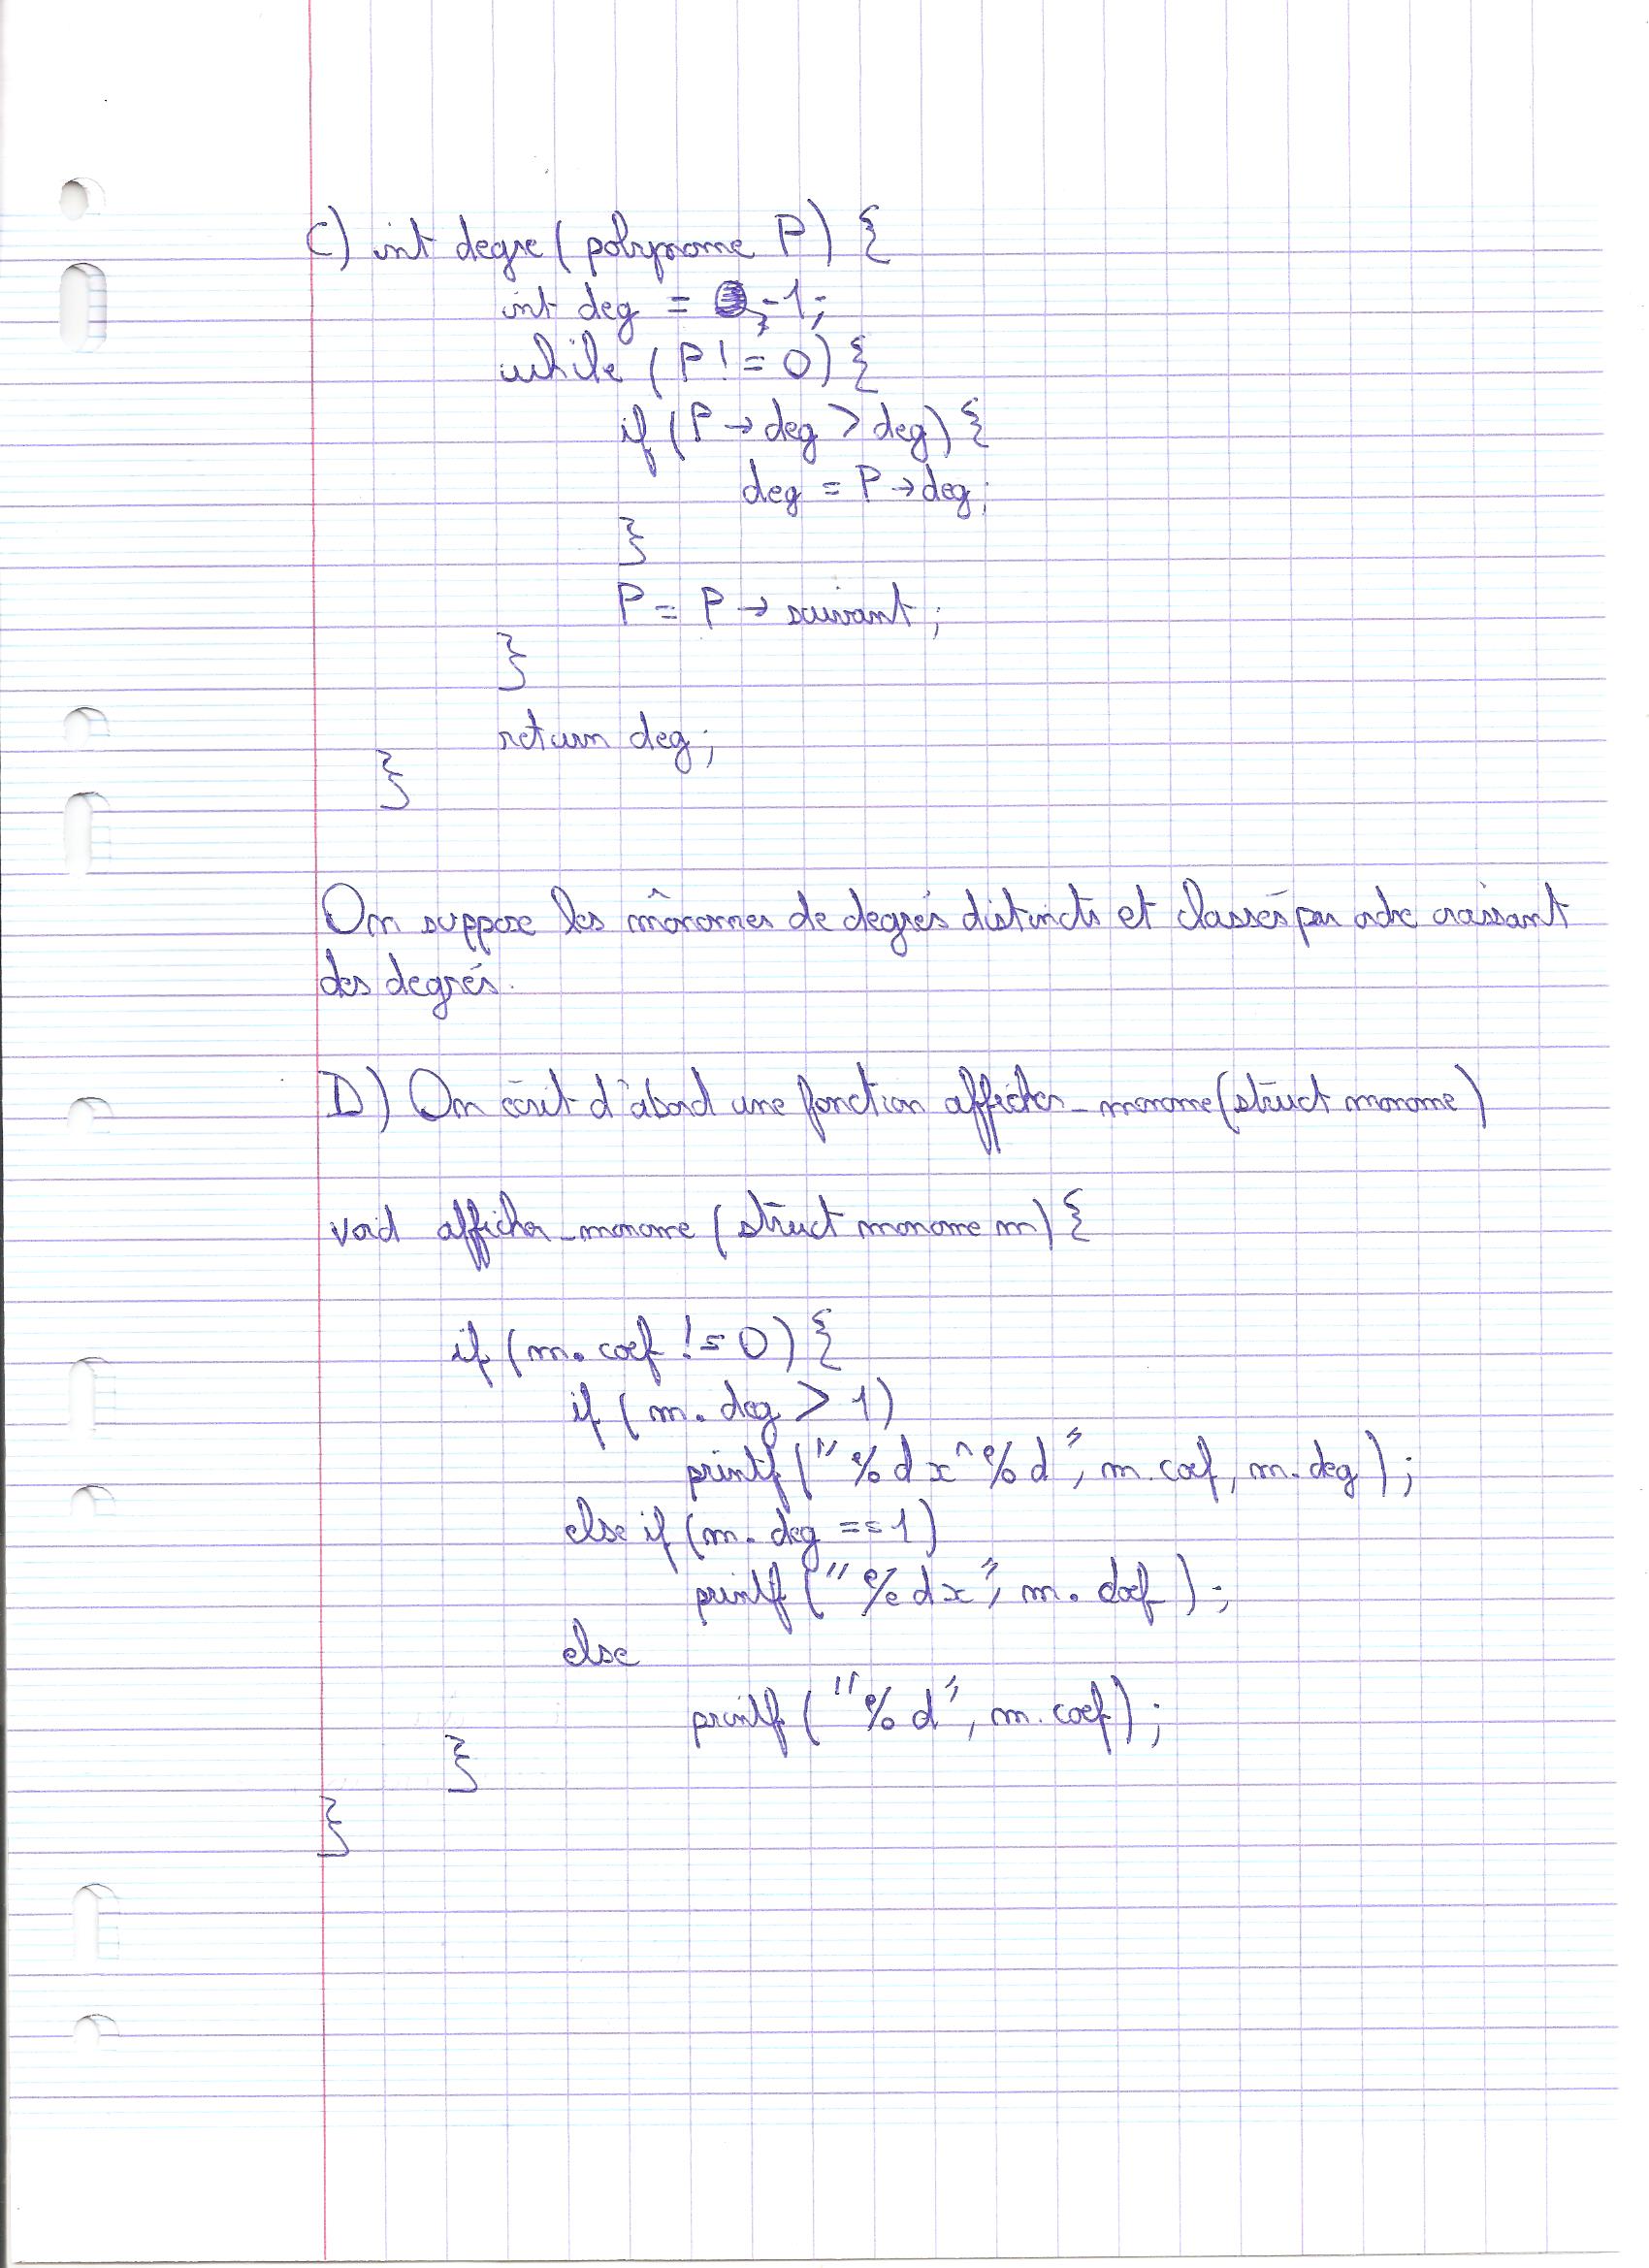 C) int degre (polynome P) {
int deg = -1;
while (P != 0) {
if (P → deg > deg) {
deg = P → deg;
}
P = P → suivant;
}
return deg;
}
On suppose les mônomes de degrés distincts et classés par ordre croissant
des degrés.
D) On écrit d'abord une fonction afficher_monome (struct monome)
void afficher_monome (struct monome m) {
if (m. coef != 0) {
if (m. deg > 1)
printf ("%d x^%d", m. coef, m. deg);
else if (m. deg == 1)
printf ("%dx", m. coef);
else
printf ("%d", m. coef);
}
}